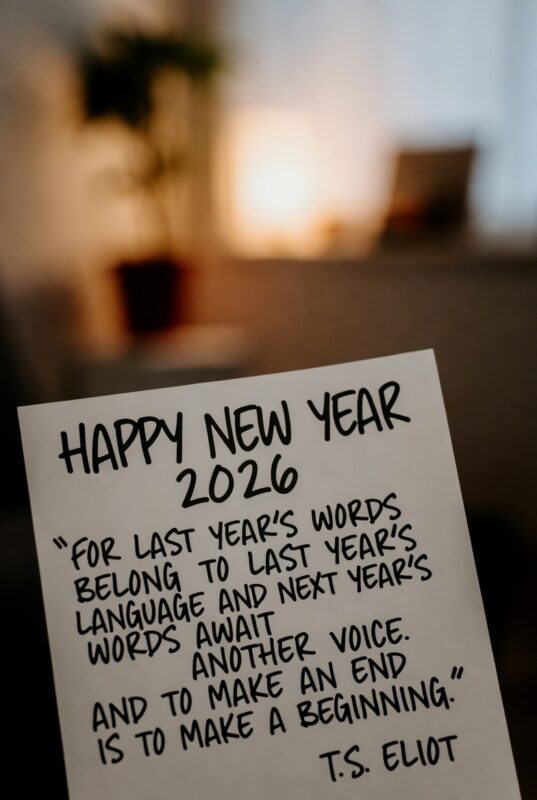 HAPPY NEW YEAR
2026
“FOR LAST YEAR'S WORDS
BELONG TO LAST YEAR'S
LANGUAGE AND NEXT YEAR'S
WORDS AWAIT
ANOTHER VOICE.
AND TO MAKE AN END
IS TO MAKE A BEGINNING.”
T.S. ELIOT